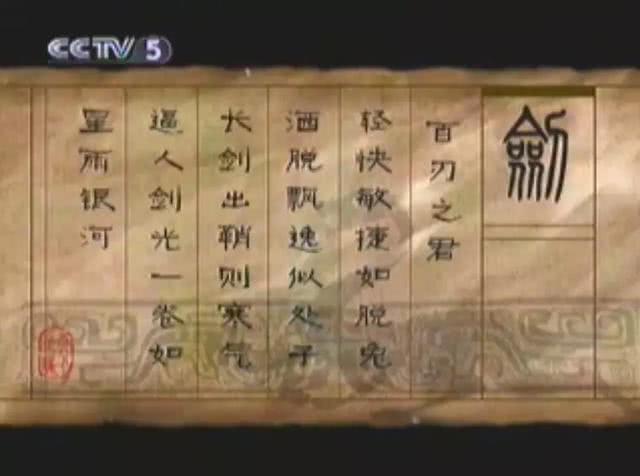 CCTV 5
劍
百刃之君
轻快敏捷如脱兔
洒脱飘逸似处子
长剑出鞘则寒气
逼人剑光一卷如
星雨银河